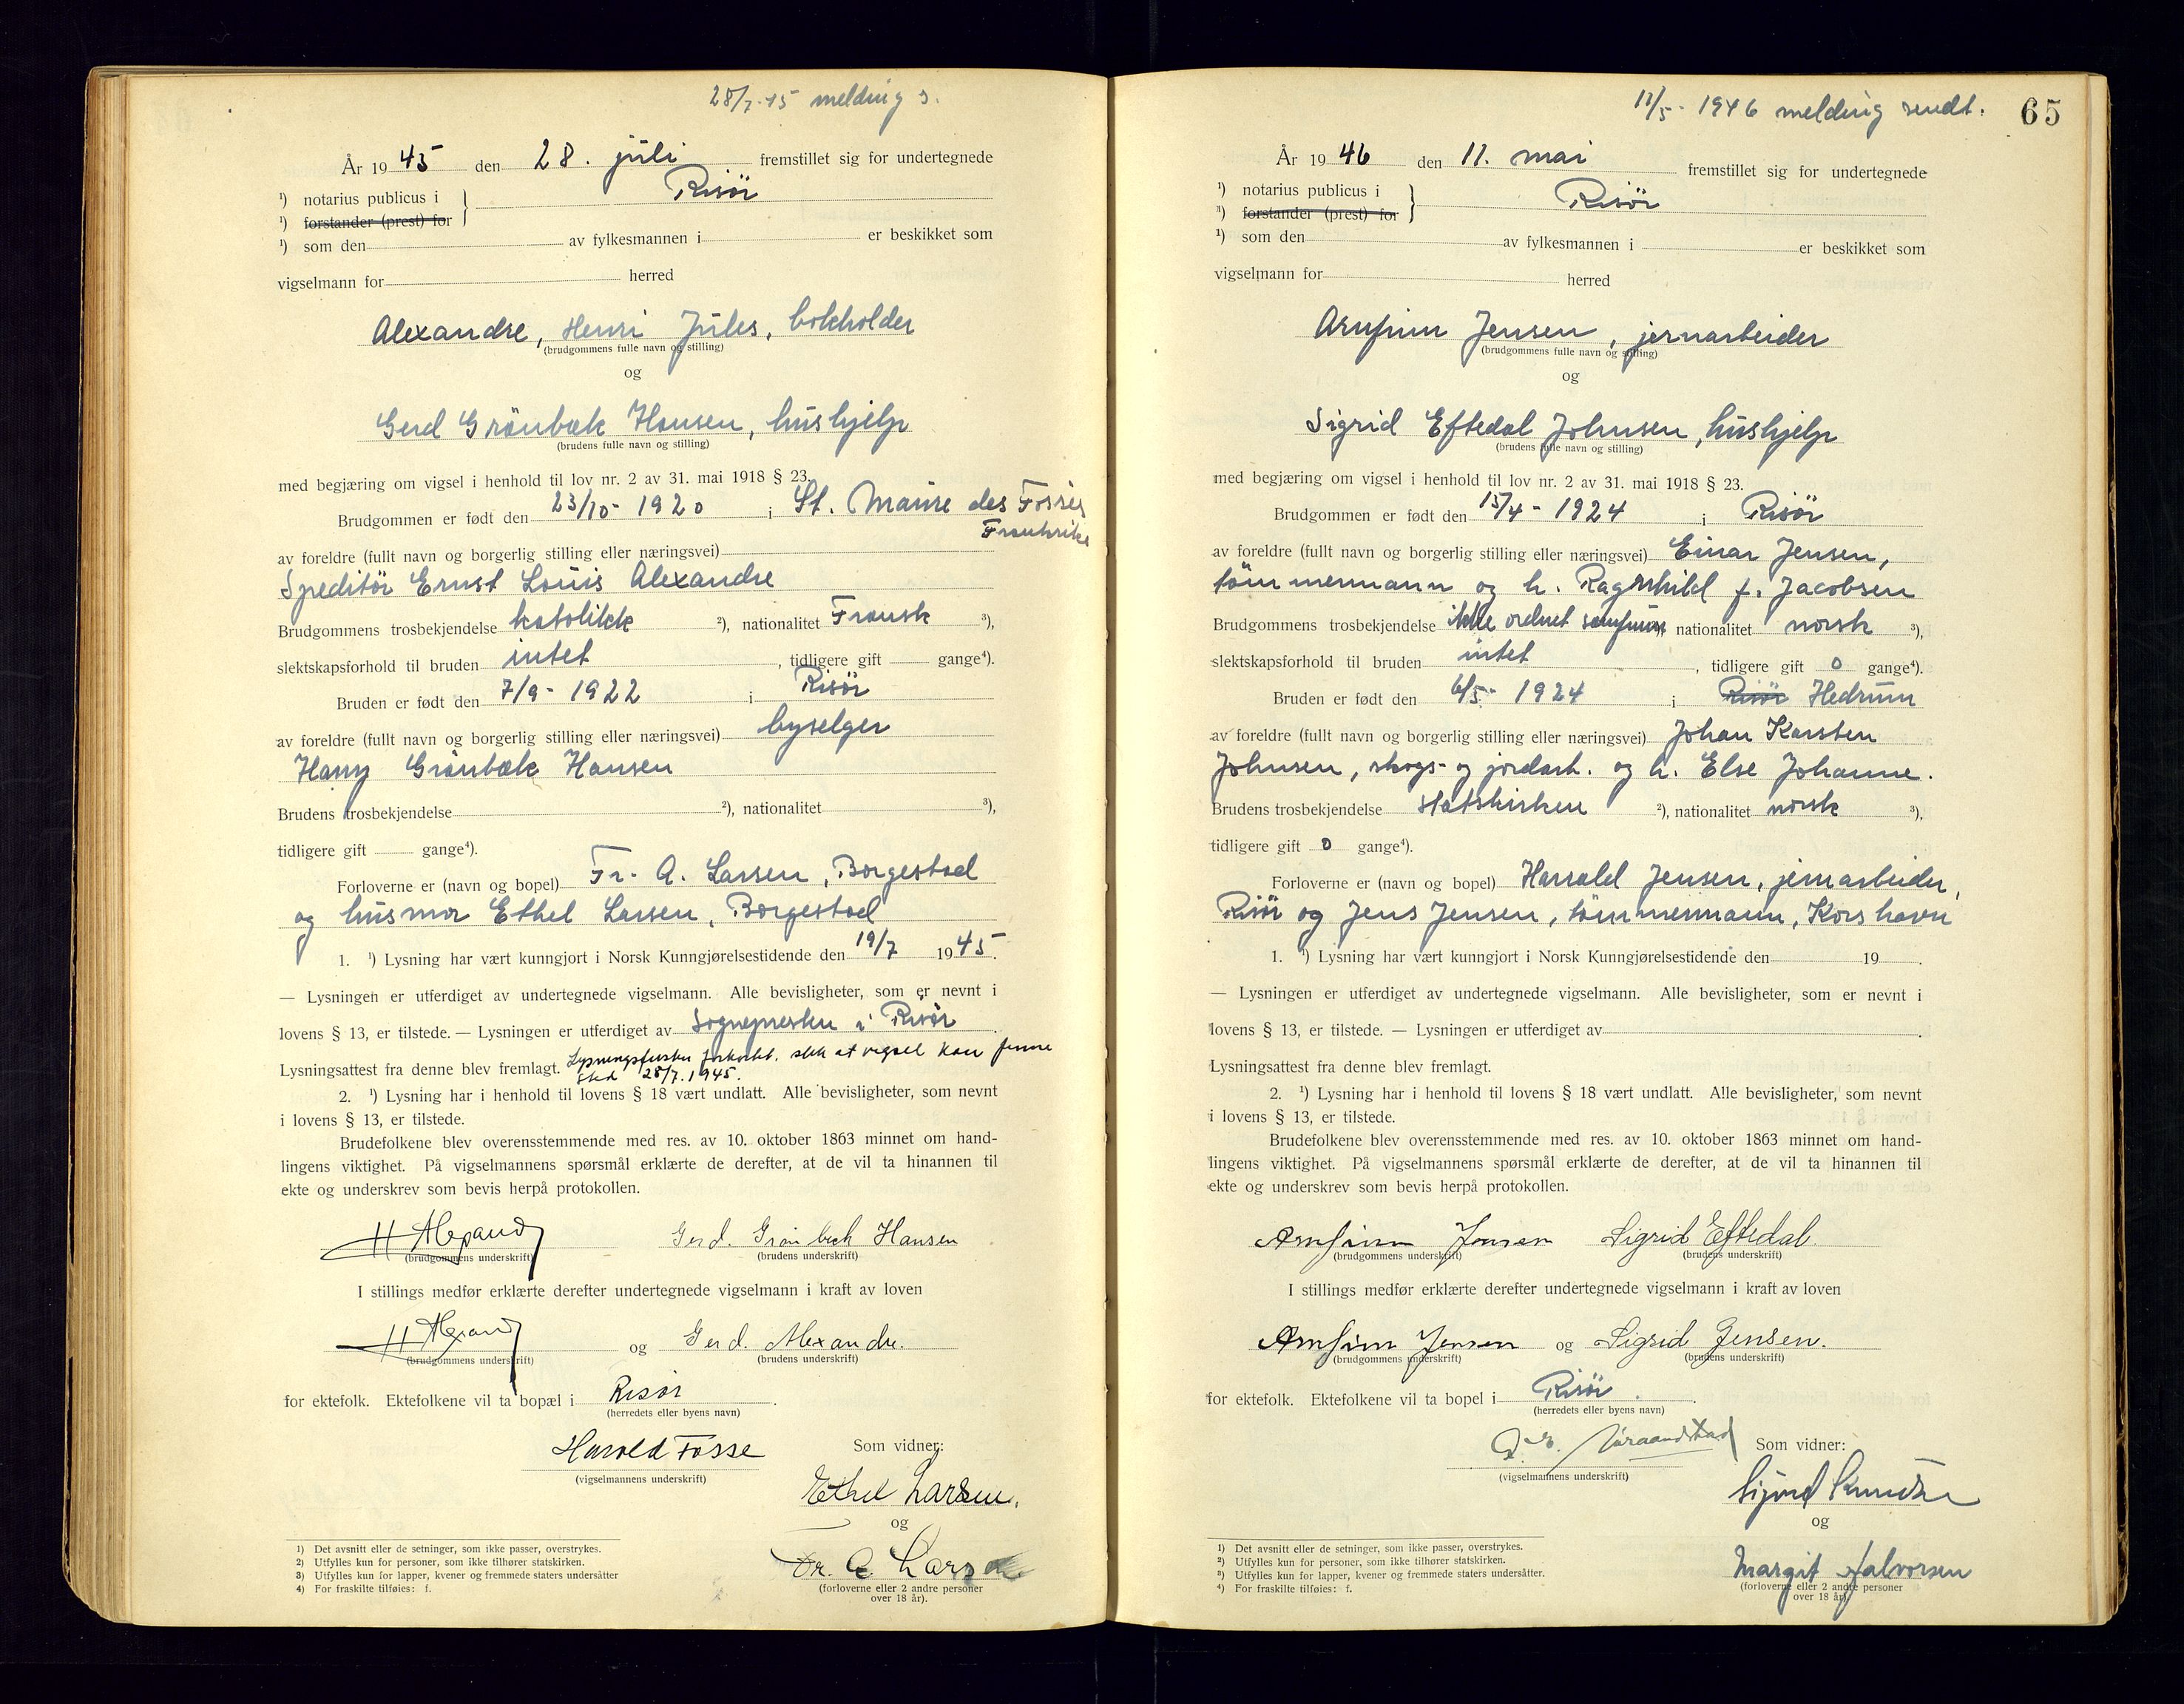 28/7-45 melding s.
År 1945 den 28. juli fremstillet sig for undertegnede
¹) notarius publicus i Risör
¹) forstander (prest) for
¹) som den av fylkesmannen i er beskikket som
vigselmann for herred
Alexandre, Henri Jules, bokholder
(brudgommens fulle navn og stilling)
og
Gerd Grönbæk Hansen, hushjelp
(brudens fulle navn og stilling)
med begjæring om vigsel i henhold til lov nr. 2 av 31. mai 1918 § 23.
Brudgommen er født den 23/10-1920 i St. Maure des Fosses
Frankrike
av foreldre (fullt navn og borgerlig stilling eller næringsvei)
Speditør Ernst Louis Alexandre
Brudgommens trosbekjendelse katolikk ²), nationalitet Fransk ³),
slektskapsforhold til bruden intet, tidligere gift gange⁴).
Bruden er født den 7/9-1922 i Risör
av foreldre (fullt navn og borgerlig stilling eller næringsvei) byselger
Harry Grönbæk Hansen
Brudens trosbekjendelse ²), nationalitet ³),
tidligere gift gange⁴).
Forloverne er (navn og bopel) Fr. A. Larsen, Borgestad
og husmor Ethel Larsen, Borgestad
1. ¹) Lysning har vært kunngjort i Norsk Kunngjørelsestidende den 19/7 1945.
— Lysningen er utferdiget av undertegnede vigselmann. Alle bevisligheter, som er nevnt i
lovens § 13, er tilstede. — Lysningen er utferdiget av Sognepresten i Risör.
Lysningsattest fra denne blev fremlagt. Lysningsfristen forkortet, slik at vigsel kan finne
sted 28/7.1945.
2. ¹) Lysning har i henhold til lovens § 18 vært undlatt. Alle bevisligheter, som nevnt
i lovens § 13, er tilstede.
Brudefolkene blev overensstemmende med res. av 10. oktober 1863 minnet om hand-
lingens viktighet. På vigselmannens spørsmål erklærte de derefter, at de vil ta hinannen til
ekte og underskrev som bevis herpå protokollen.
H Alexandre Gerd. Grønbech Hansen
(brudgommens underskrift) (brudens underskrift)
I stillings medfør erklærte derefter undertegnede vigselmann i kraft av loven
H Alexandre og Gerd. Alexandre.
(brudgommens underskrift) (brudens underskrift)
for ektefolk. Ektefolkene vil ta bopæl i Risør.
(herredets eller byens navn)
Harald Fosse Som vidner:
(vigselmannens underskrift)
Ethel Larsen.
og
Fr. A Larsen
(forloverne eller 2 andre personer
over 18 år).
1) Det avsnitt eller de setninger, som ikke passer, overstrykes.
2) Utfylles kun for personer, som ikke tilhører statskirken.
3) Utfylles kun for lapper, kvener og fremmede staters undersåtter
4) For fraskilte tilføies: f.
11/5-1946 melding sendt. 65
År 1946 den 11. mai fremstillet sig for undertegnede
¹) notarius publicus i Risör
¹) forstander (prest) for
¹) som den av fylkesmannen i er beskikket som
vigselmann for herred
Arnfinn Jensen, jernarbeider
(brudgommens fulle navn og stilling)
og
Sigrid Eftedal Johnsen, hushjelp
(brudens fulle navn og stilling)
med begjæring om vigsel i henhold til lov nr. 2 av 31. mai 1918 § 23.
Brudgommen er født den 15/4-1924 i Risör
av foreldre (fullt navn og borgerlig stilling eller næringsvei) Einar Jensen,
tömmermann og h. Ragnhild f. Jacobsen
Brudgommens trosbekjendelse ikke ordnet samfunn, nationalitet norsk ³),
slektskapsforhold til bruden intet, tidligere gift 0 gange⁴).
Bruden er født den 6/5-1924 i Risör Hedrum
av foreldre (fullt navn og borgerlig stilling eller næringsvei) Johan Karsten
Johnsen, skogs- og jordarb. og h. Else Johanne.
Brudens trosbekjendelse statskirken ²), nationalitet norsk ³),
tidligere gift 0 gange⁴).
Forloverne er (navn og bopel) Harrald Jensen, jernarbeider,
Risör og Jens Jensen, tömmermann, Korshavn
1. ¹) Lysning har vært kunngjort i Norsk Kunngjørelsestidende den 19 .
— Lysningen er utferdiget av undertegnede vigselmann. Alle bevisligheter, som er nevnt i
lovens § 13, er tilstede. — Lysningen er utferdiget av .
Lysningsattest fra denne blev fremlagt.
2. ¹) Lysning har i henhold til lovens § 18 vært undlatt. Alle bevisligheter, som nevnt
i lovens § 13, er tilstede.
Brudefolkene blev overensstemmende med res. av 10. oktober 1863 minnet om hand-
lingens viktighet. På vigselmannens spørsmål erklærte de derefter, at de vil ta hinannen til
ekte og underskrev som bevis herpå protokollen.
Arnfinn Jensen Sigrid Eftedal
(brudgommens underskrift) (brudens underskrift)
I stillings medfør erklærte derefter undertegnede vigselmann i kraft av loven
Arnfinn Jensen og Sigrid Jensen.
(brudgommens underskrift) (brudens underskrift)
for ektefolk. Ektefolkene vil ta bopel i Risör.
(herredets eller byens navn)
Som vidner:
(vigselmannens underskrift)
og
Margit Halvorsen
(forloverne eller 2 andre personer
over 18 år).
1) Det avsnitt eller de setninger, som ikke passer, overstrykes.
2) Utfylles kun for personer, som ikke tilhører statskirken.
3) Utfylles kun for lapper, kvener og fremmede staters undersåtter.
4) For fraskilte tilføies: f.